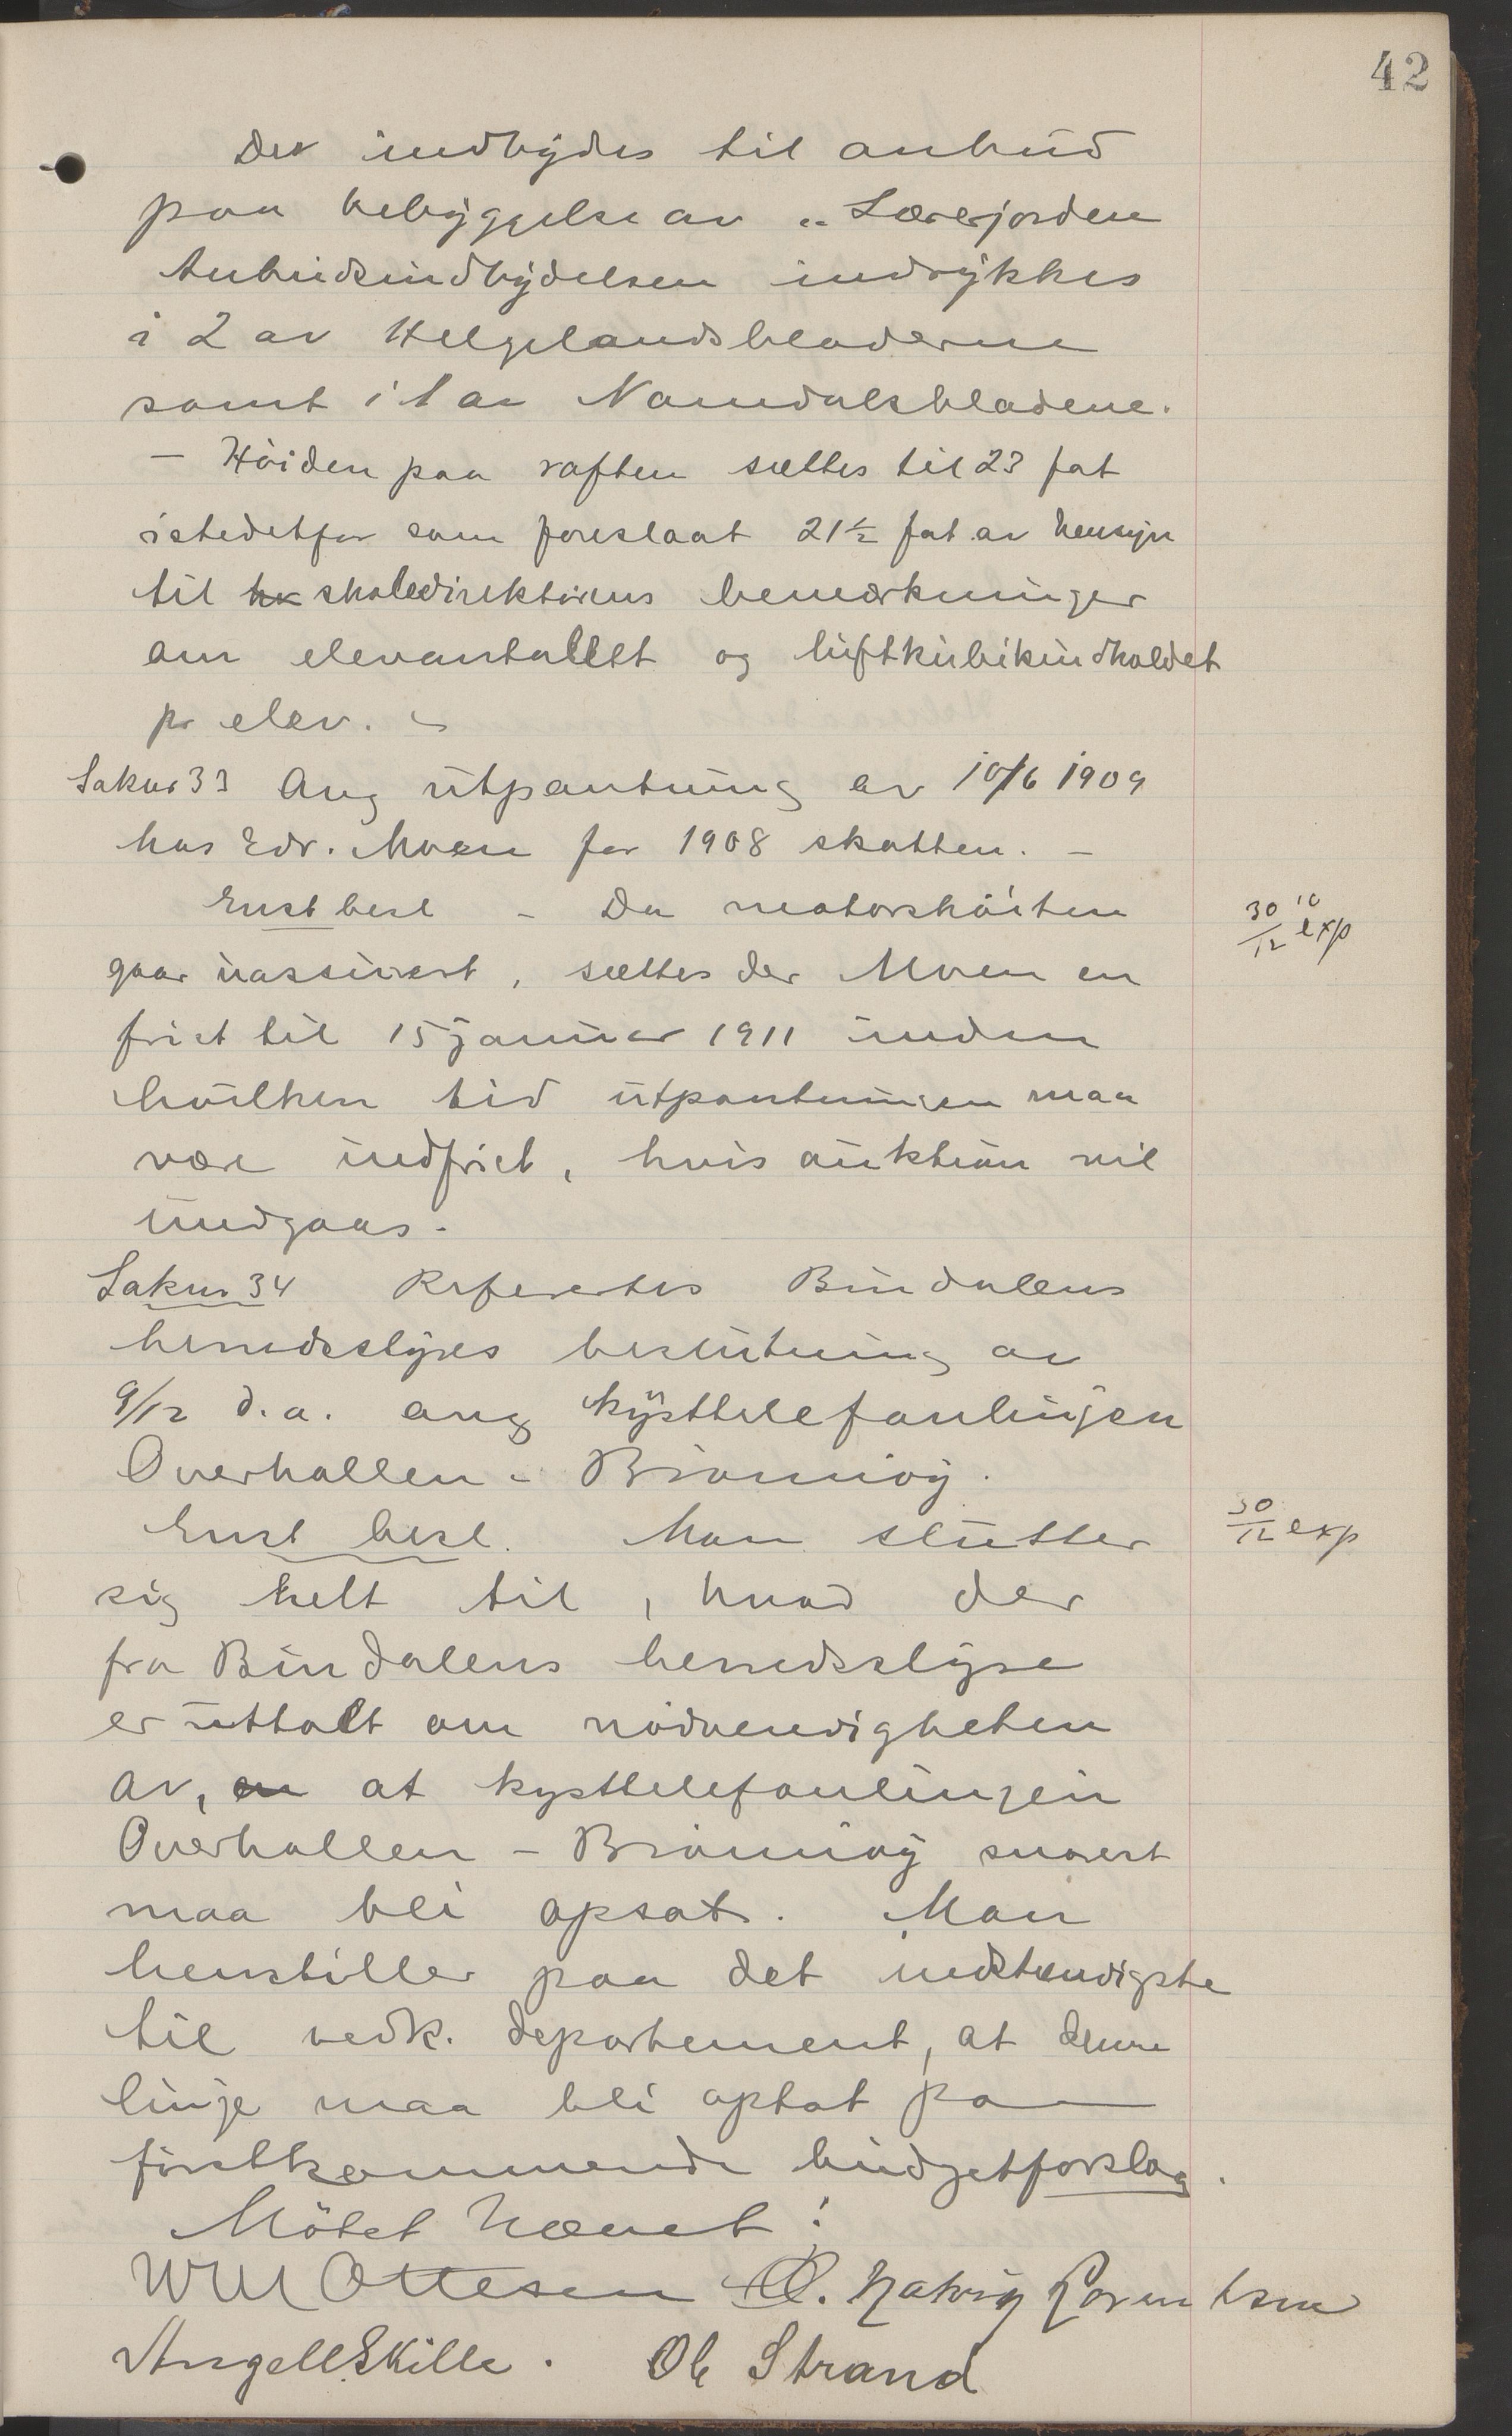 42
Der indbydes til anbud
paa bebyggelse av „Lærerjorden
Anbudsindbydelsen indrykkes
i 2 av Helgelandsbladerne
samt i 1 av Namdalsbladene.
– Höiden paa raften sættes til 23 fot
istedetfor som foreslaat 21 1/2 fot av hensyn
til skoledirektörens bemærkninger
om elevantallet og luftkubikindholdet
pr elev. –
Saknr 33 Ang utpantning av 10/6 1909
hos Edv. Moen for 1908 skatten. –
Enst besl – Da motorsköiten
gaar uassurert, sættes der Moen en
frist til 15 januar 1911 inden
hvilken tid utpantningen maa
være indfriet, hvis auktion vil
undgaaes.
30/12 10 exp
Saknr 34 Refereertes Bindalens
herredsstyres beslutning av
9/12 d.a. ang kysttelefonlinjen
Overhallen – Brönnöy.
Enst besl. Man slutter
30/12 exp
sig helt til, hvad der
fra Bindalens herredsstyre
er uttalt om nödvendigheten
av, en at kysttelefonlinjen
Overhallen – Brönnöy snarest
maa bli opsat. Man
henstiller paa det indstændigste
til vedk. departement, at denne
linje maa bli optat paa
förstkommende budgetforslag.
Mötet hævet!
WM Ottesen O. Hatvig Lorentsen
Angell Skille. Ole Strand